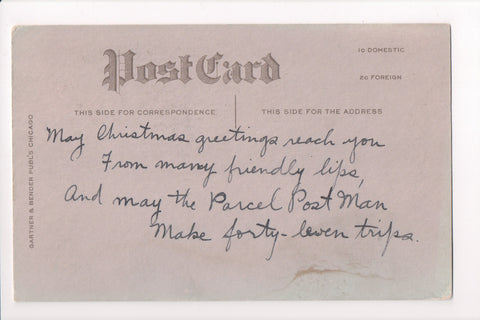 PostCard
1¢ DOMESTIC
2¢ FOREIGN
THIS SIDE FOR CORRESPONDENCE
THIS SIDE FOR THE ADDRESS
May Christmas greetings reach you
From many friendly lips,
And may the Parcel Post Man
Make forty-leven trips.
GARTNER & BENDER PUBL'S CHICAGO